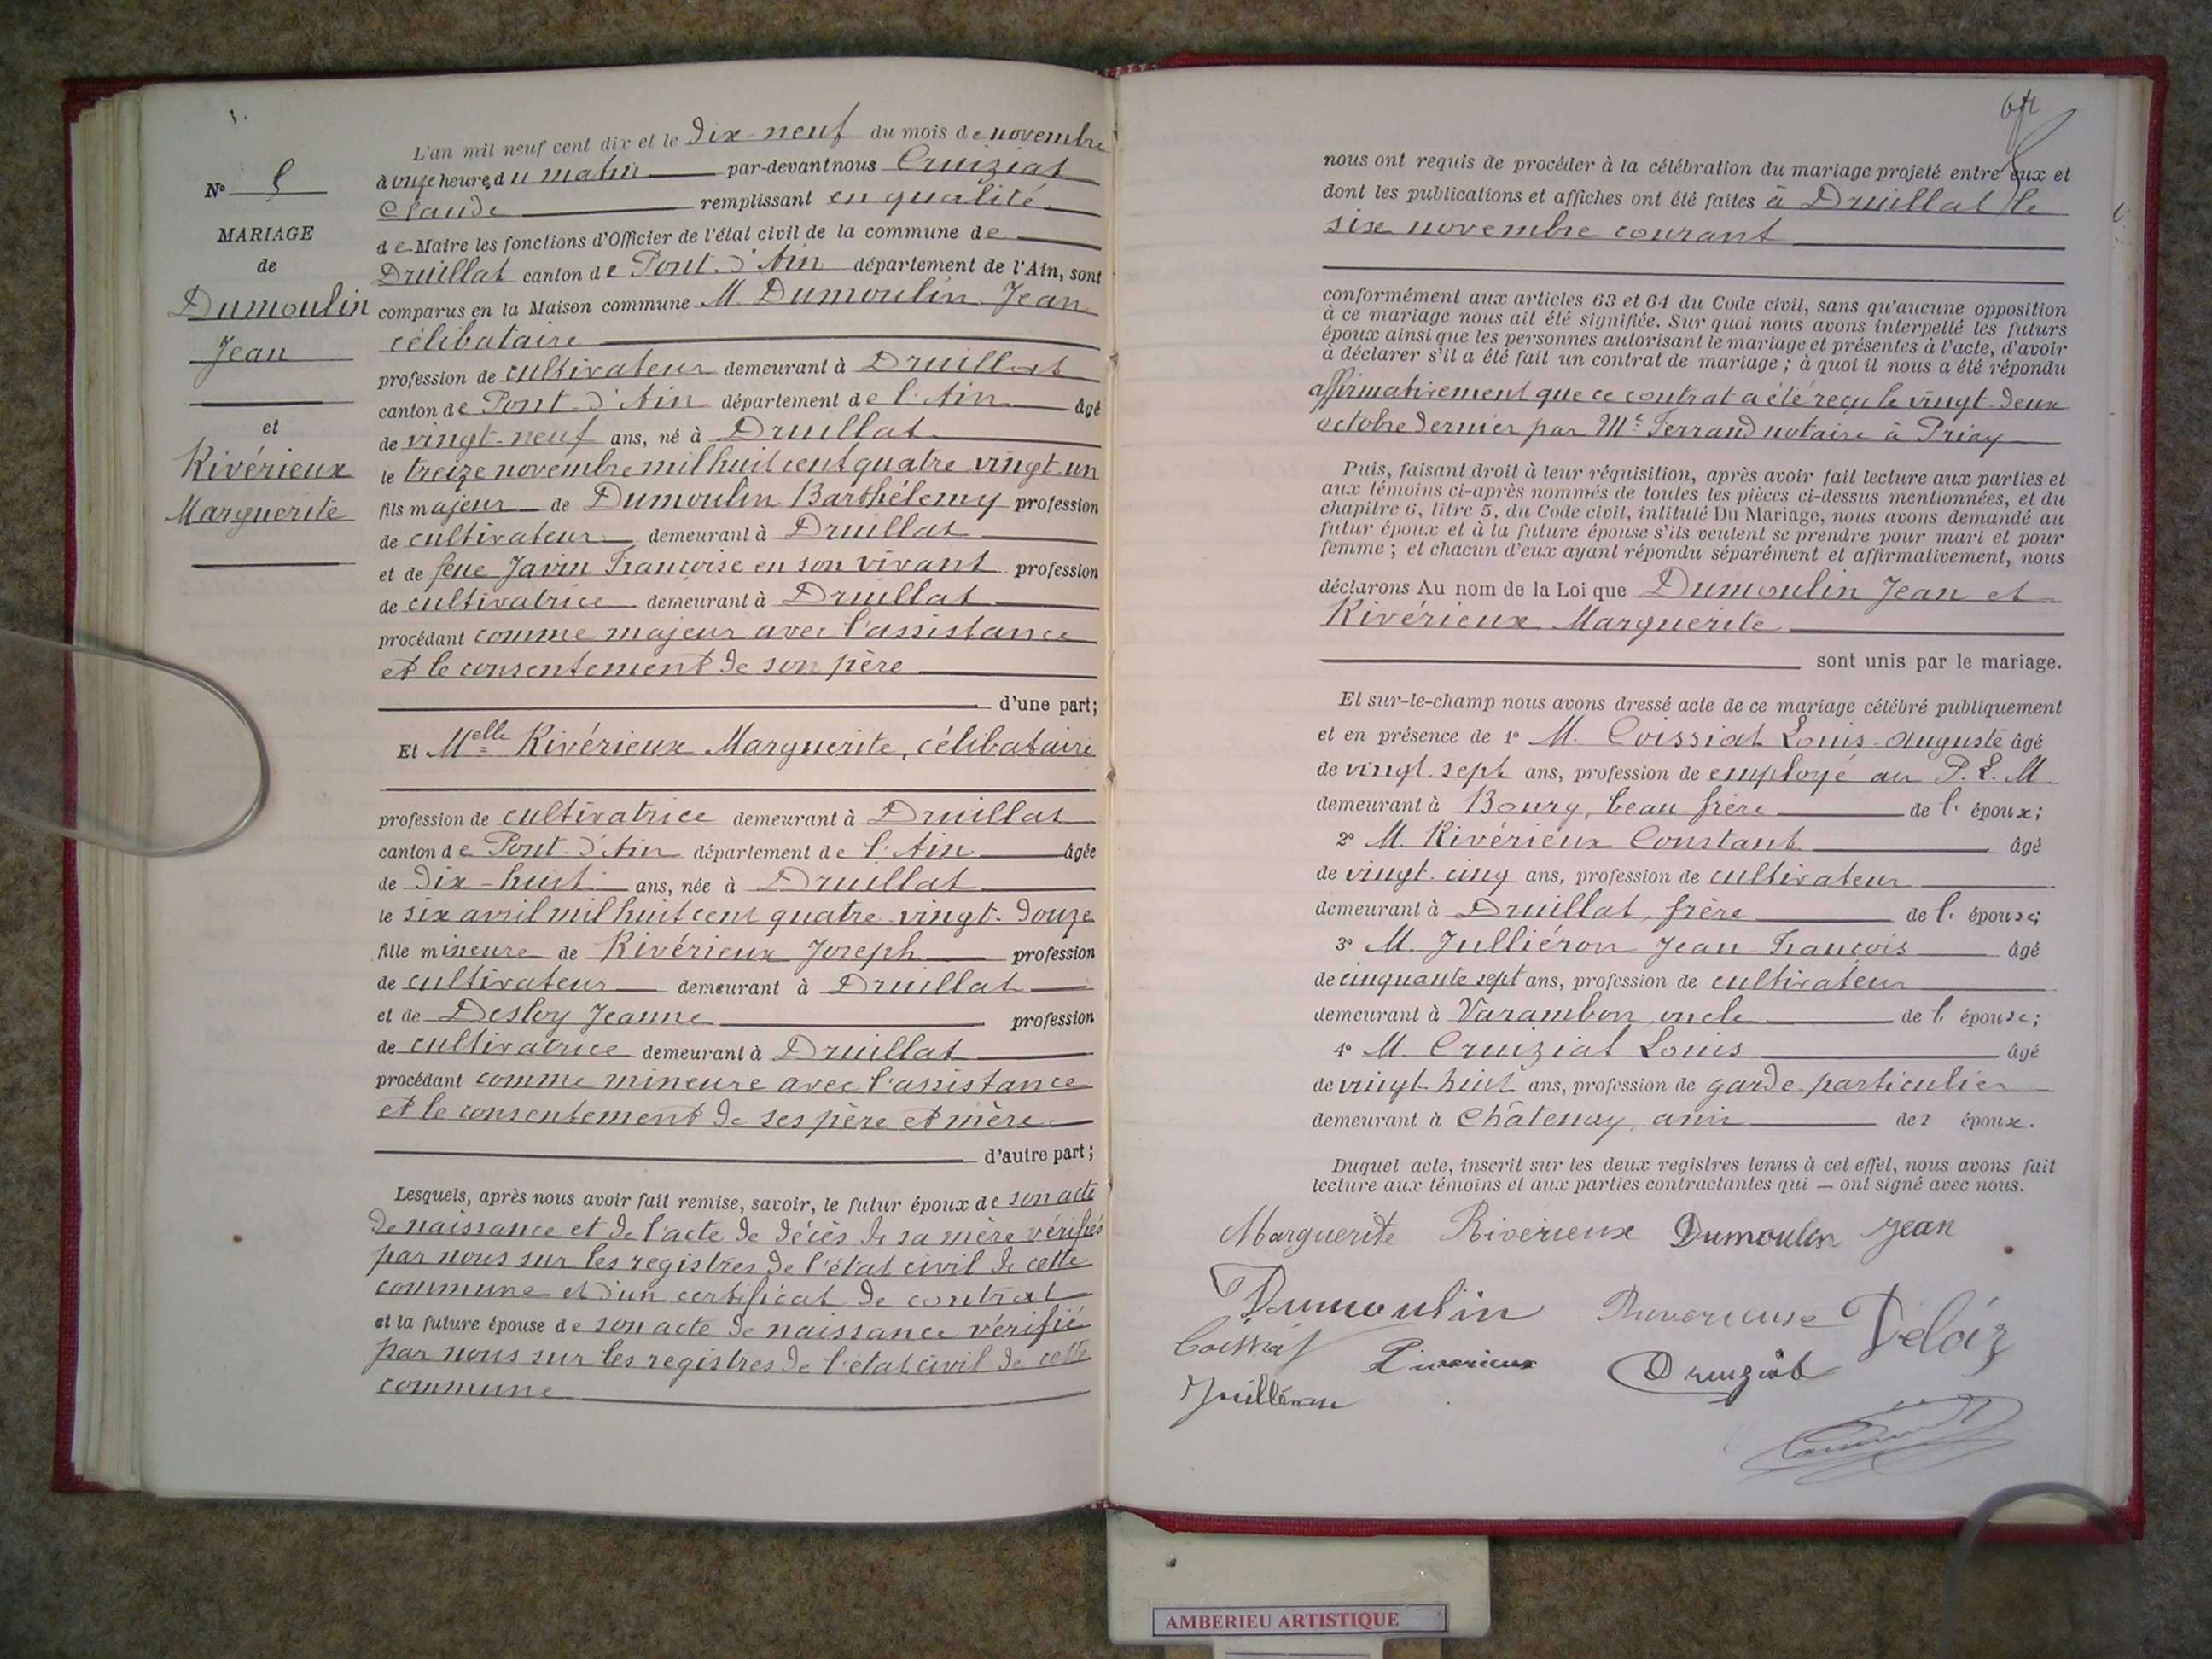 L'an mil neuf cent dix et le dix-neuf du mois de novembre
à onze heures du matin par-devant nous Cruiziat
Claude remplissant en qualité
de Maire les fonctions d'Officier de l'état civil de la commune de
Druillat canton de Pont-d'Ain département de l'Ain, sont
comparus en la Maison commune M. Dumoulin Jean
célibataire
profession de cultivateur demeurant à Druillat
canton de Pont-d'Ain département de l'Ain âgé
de vingt-neuf ans, né à Druillat
le treize novembre mil huit cent quatre vingt-un
fils majeur de Dumoulin Barthélemy profession
de cultivateur demeurant à Druillat
et de feue Javrin Françoise en son vivant profession
de cultivatrice demeurant à Druillat
procédant comme majeur avec l'assistance
et le consentement de son père
d'une part;
Et Melle Rivérieux Marguerite, célibataire
profession de cultivatrice demeurant à Druillat
canton de Pont-d'Ain département de l'Ain âgée
de dix-huit ans, née à Druillat
le six avril mil huit cent quatre-vingt-douze
fille mineure de Rivérieux Joseph profession
de cultivateur demeurant à Druillat
et de Desloy Jeanne profession
de cultivatrice demeurant à Druillat
procédant comme mineure avec l'assistance
et le consentement de ses père et mère
d'autre part;
Lesquels, après nous avoir fait remise, savoir, le futur époux de son acte
de naissance et de l'acte de décès de sa mère vérifiés
par nous sur les registres de l'état civil de cette
commune et d'un certificat de contrat
et la future épouse de son acte de naissance vérifié
par nous sur les registres de l'état civil de cette
commune
N° 5
MARIAGE
de
Dumoulin
Jean
et
Rivérieux
Marguerite
nous ont requis de procéder à la célébration du mariage projeté entre eux et
dont les publications et affiches ont été faites à Druillat le
six novembre courant
conformément aux articles 63 et 64 du Code civil, sans qu'aucune opposition
à ce mariage nous ait été signifiée. Sur quoi nous avons interpellé les futurs
époux ainsi que les personnes autorisant le mariage et présentes à l'acte, d'avoir
à déclarer s'il a été fait un contrat de mariage ; à quoi il nous a été répondu
affirmativement que ce contrat a été reçu le vingt-deux
octobre dernier par Me Ferrand notaire à Priay
Puis, faisant droit à leur réquisition, après avoir fait lecture aux parties et
aux témoins ci-après nommés de toutes les pièces ci-dessus mentionnées, et du
chapitre 6, titre 5, du Code civil, intitulé Du Mariage, nous avons demandé au
futur époux et à la future épouse s'ils veulent se prendre pour mari et pour
femme ; et chacun d'eux ayant répondu séparément et affirmativement, nous
déclarons Au nom de la Loi que Dumoulin Jean et
Rivérieux Marguerite
sont unis par le mariage.
Et sur-le-champ nous avons dressé acte de ce mariage célébré publiquement
et en présence de 1° M. Coissiat Louis-Auguste âgé
de vingt-sept ans, profession de employé au P. L. M
demeurant à Bourg, beau frère de l' époux;
2° M. Rivérieux Constant âgé
de vingt-cinq ans, profession de cultivateur
demeurant à Druillat, frère de l' épouse;
3° M. Julliéron Jean François âgé
de cinquante sept ans, profession de cultivateur
demeurant à Varambon, oncle de l' épouse;
4° M. Cruiziat Louis âgé
de vingt-huit ans, profession de garde particulier
demeurant à Châtenay, ami des époux.
Duquel acte, inscrit sur les deux registres tenus à cet effet, nous avons fait
lecture aux témoins et aux parties contractantes qui — ont signé avec nous.
Marguerite Rivérieux Dumoulin Jean
Dumoulin
Coissiat Rivérieux Cruiziat
AMBERIEU ARTISTIQUE